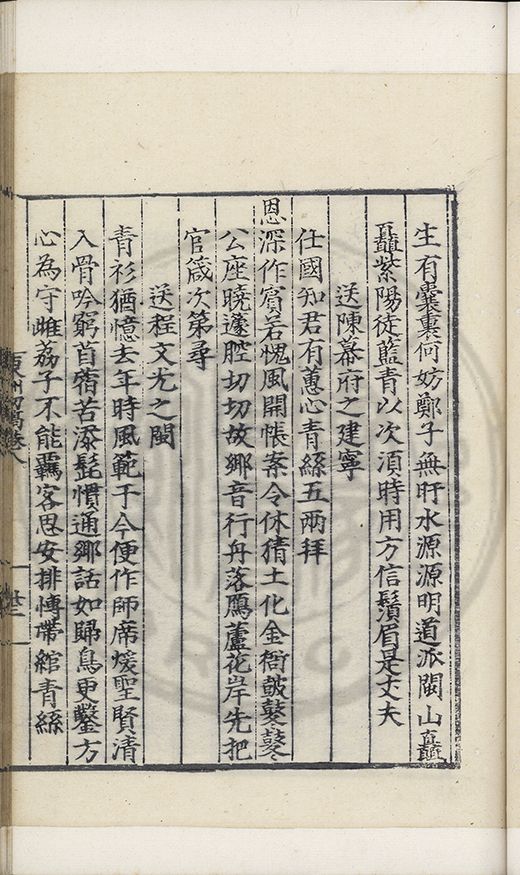 生有囊裏何妨鄭子無盱水源源明道派閩山矗
矗紫陽徒籃青以次湏時用方信鬚眉是丈夫
送陳幕府之建寧
仕國知君有蕙心青絲五兩拜
恩深作賔若愧風開帳案令休猜土化金衙皷鼕鼕
公座曉蘧腔切切故鄉音行舟落鴈蘆花岸先把
官箴次第尋
送程文尤之閩
青衫猶憶去年時風範于今便作師席煖聖賢清
入骨吟窮苜蓿苦添髭慣通鄉話如歸鳥更鑿方
心為守雌荔子不能羈客思安排愽帶綰青絲